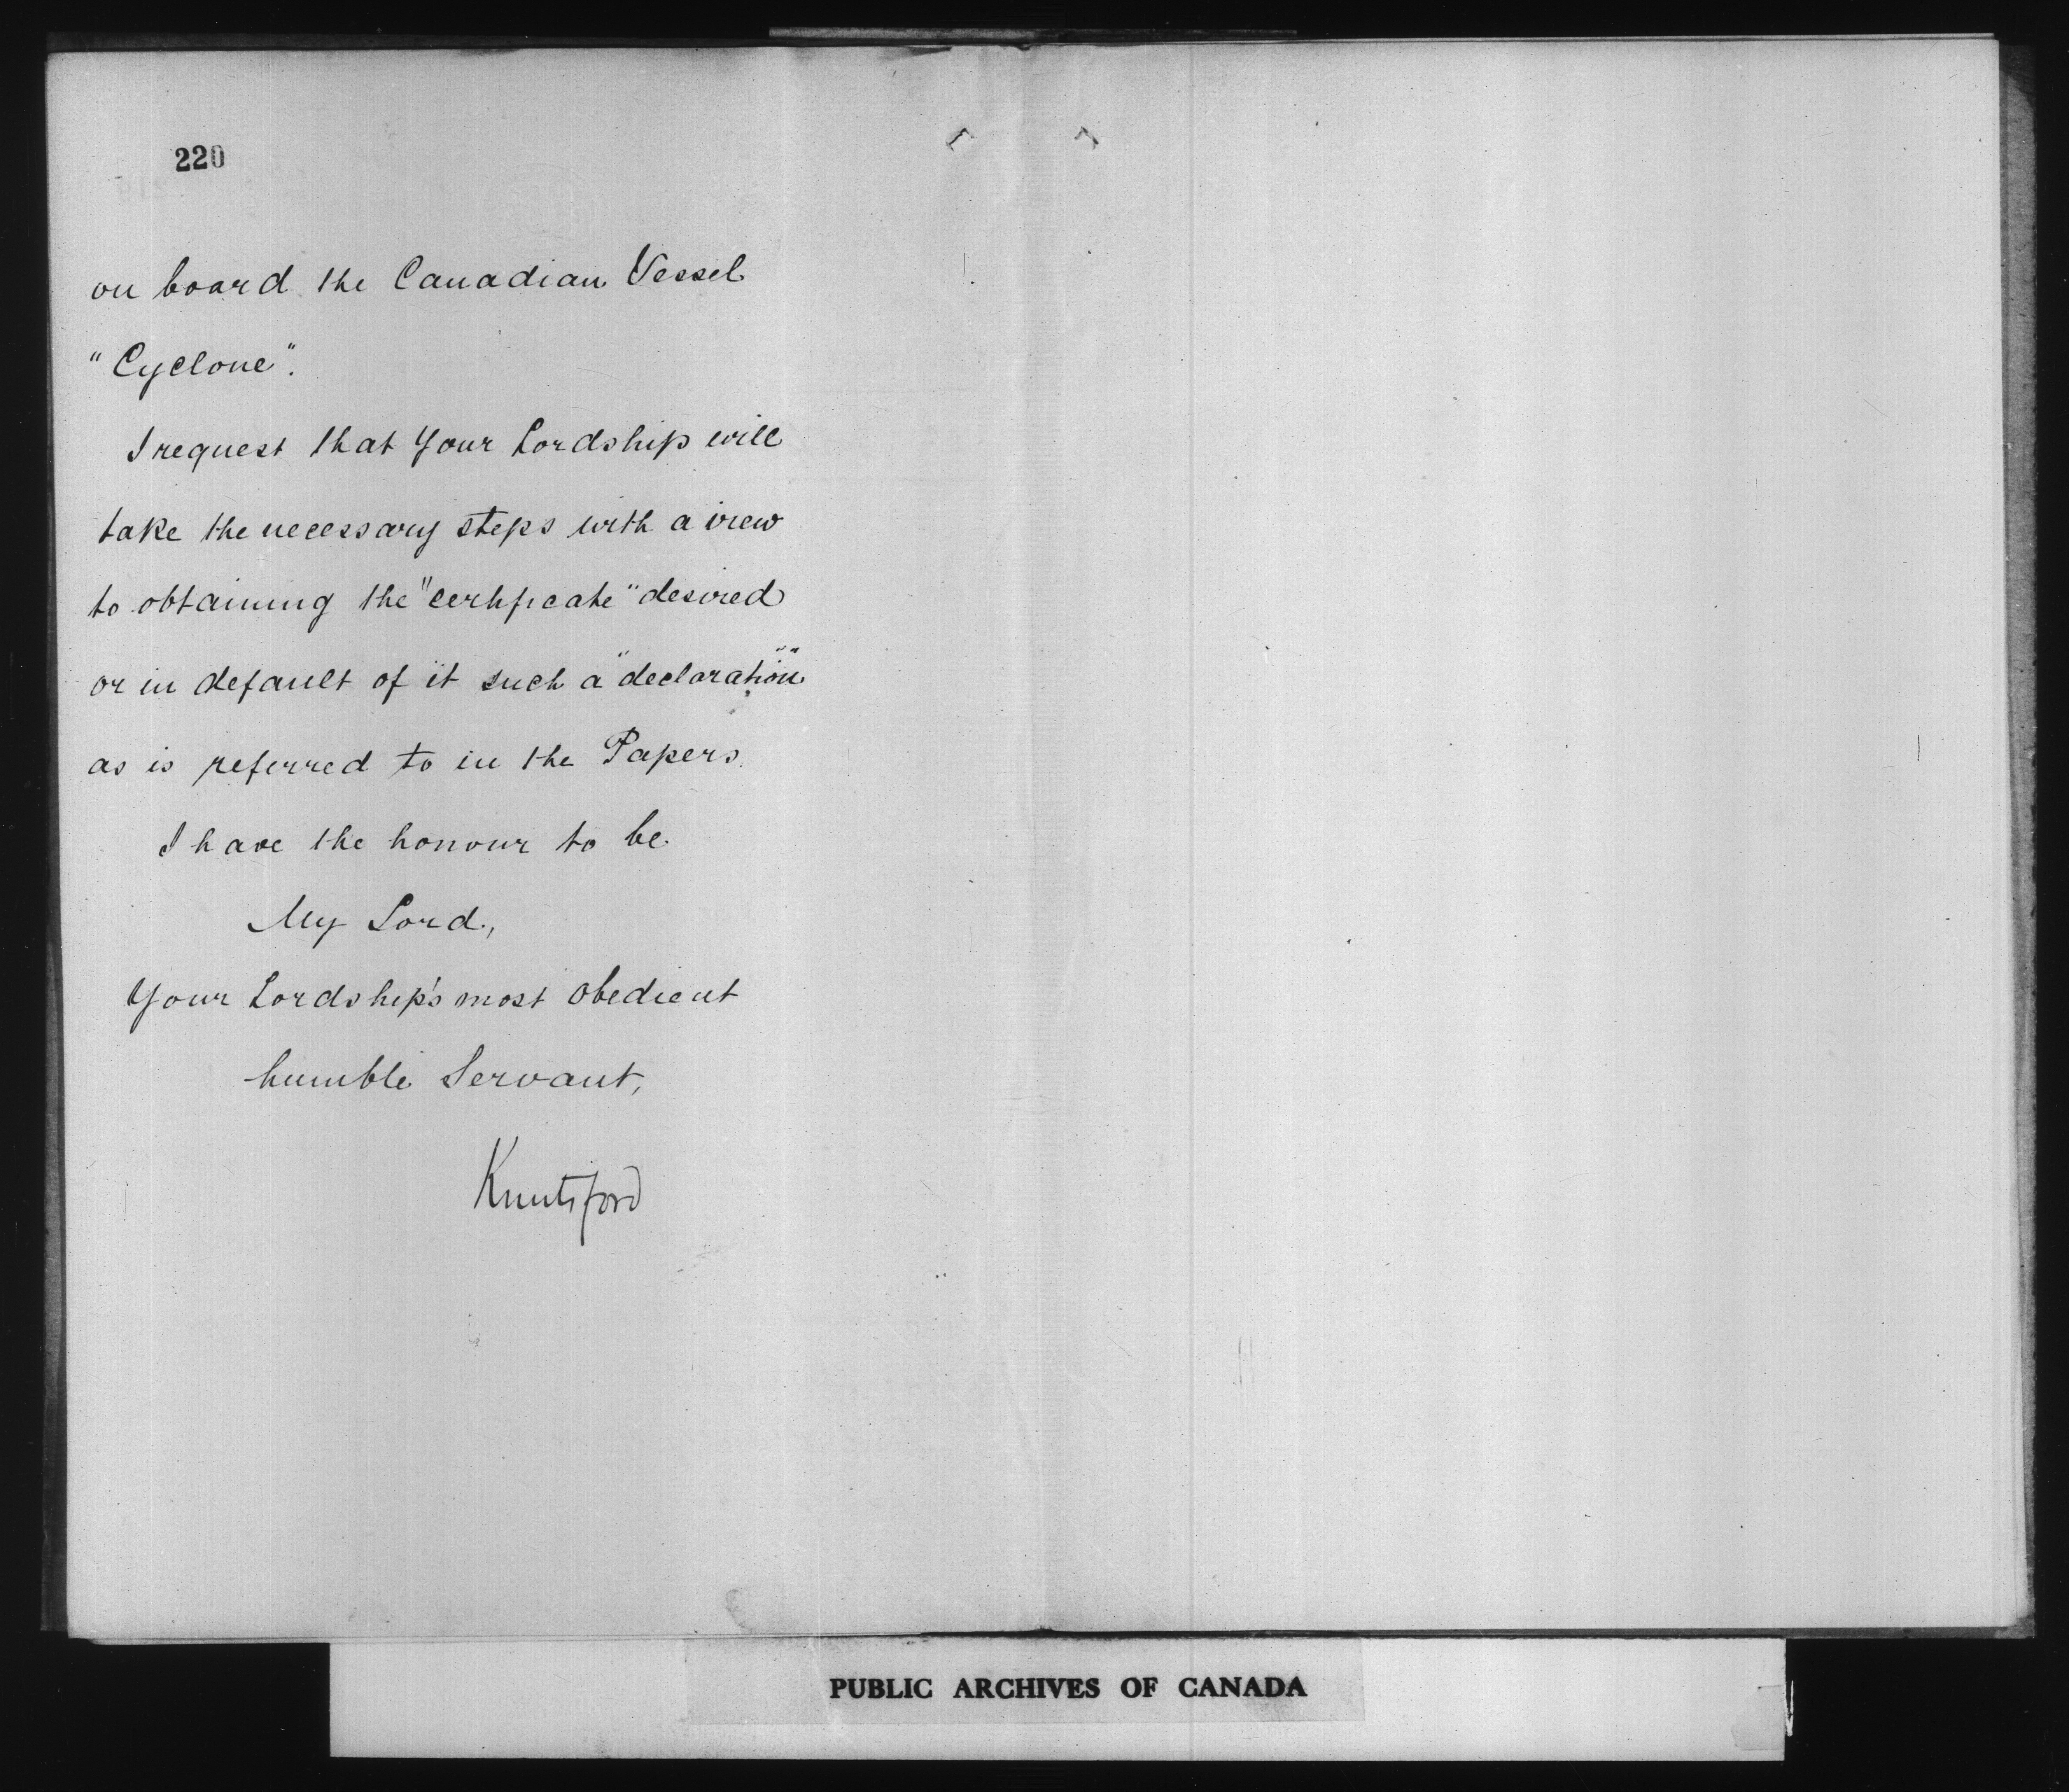 220
on board the Canadian Vessel
"Cyclone".
I request that Your Lordship will
take the necessary steps with a view
to obtaining the "certificate" desired
or in default of it such a "declaration"
as is referred to in the Papers.
I have the honour to be
My Lord,
Your Lordship's most obedient
humble Servant,
Knutsford
PUBLIC ARCHIVES OF CANADA